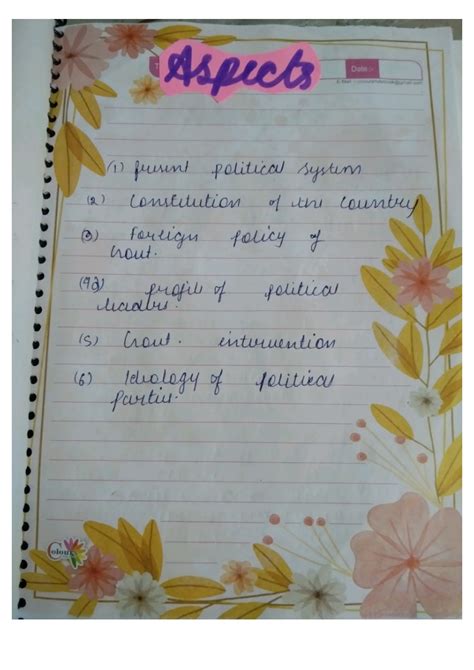 Aspects
Date:-
(1) present political system
(2) Constitution of the Country
(3) Foreign policy of
Govt.
(4) profile of political
leaders.
(5) Govt. intervention
(6) Ideology of political
parties.
Colour